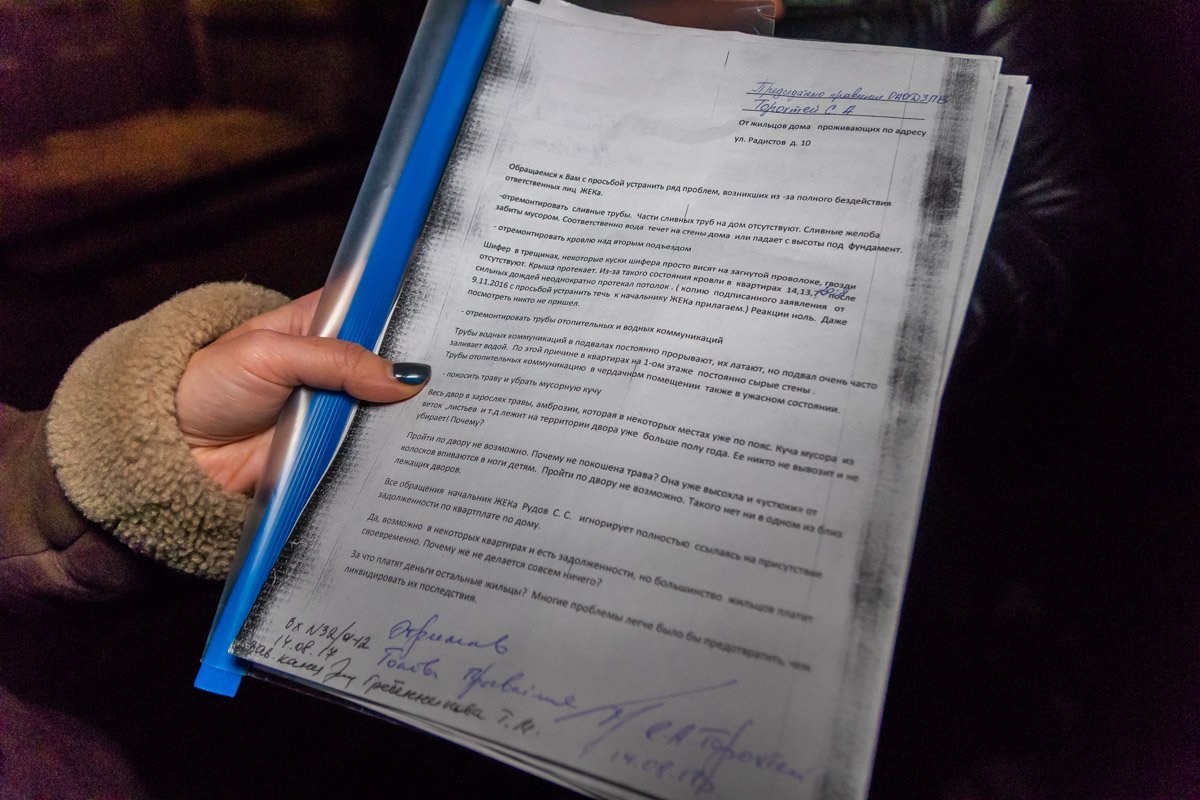 Торохтей С. А
От жильцов дома проживающих по адресу
ул. Радистов д. 10
Обращаемся к Вам с просьбой устранить ряд проблем, возникших из -за полного бездействия
ответственных лиц ЖЕКа.
-отремонтировать сливные трубы. Части сливных труб на дом отсутствуют. Сливные желоба
забиты мусором. Соответственно вода течет на стены дома или падает с высоты под фундамент.
- отремонтировать кровлю над вторым подъездом
Шифер в трещинах, некоторые куски шифера просто висят на загнутой проволоке, гвозди
отсутствуют. Крыша протекает. Из-за такого состояния кровли в квартирах 14,13, после
сильных дождей неоднократно протекал потолок . ( копию подписанного заявления от
9.11.2016 с просьбой устранить течь к начальнику ЖЕКа прилагаем.) Реакции ноль. Даже
посмотреть никто не пришел.
- отремонтировать трубы отопительных и водных коммуникаций
Трубы водных коммуникаций в подвалах постоянно прорывают, их латают, но подвал очень часто
заливает водой. По этой причине в квартирах на 1-ом этаже постоянно сырые стены .
Трубы отопительных коммуникацию в чердачном помещении также в ужасном состоянии.
- покосить траву и убрать мусорную кучу
Весь двор в зарослях травы, амброзии, которая в некоторых местах уже по пояс. Куча мусора из
веток ,листьев и т.д лежит на территории двора уже больше полу года. Ее никто не вывозит и не
убирает! Почему?
Пройти по двору не возможно. Почему не покошена трава? Она уже высохла и «устюки» от
колосков впиваются в ноги детям. Пройти по двору не возможно. Такого нет ни в одном из близ
лежащих дворов.
Все обращения начальник ЖЕКа Рудов С. С. игнорирует полностью ссылаясь на присутствие
задолженности по квартплате по дому.
Да, возможно в некоторых квартирах и есть задолженности, но большинство жильцов платят
своевременно. Почему же не делается совсем ничего?
За что платят деньги остальные жильцы? Многие проблемы легче было бы предотвратить, чем
ликвидировать их последствия.
Отримав
Голова правління
С.А Торохтей
14.08.17р.
вх N32/012
14.08.17
зав. канц Гребенникова Т. М.